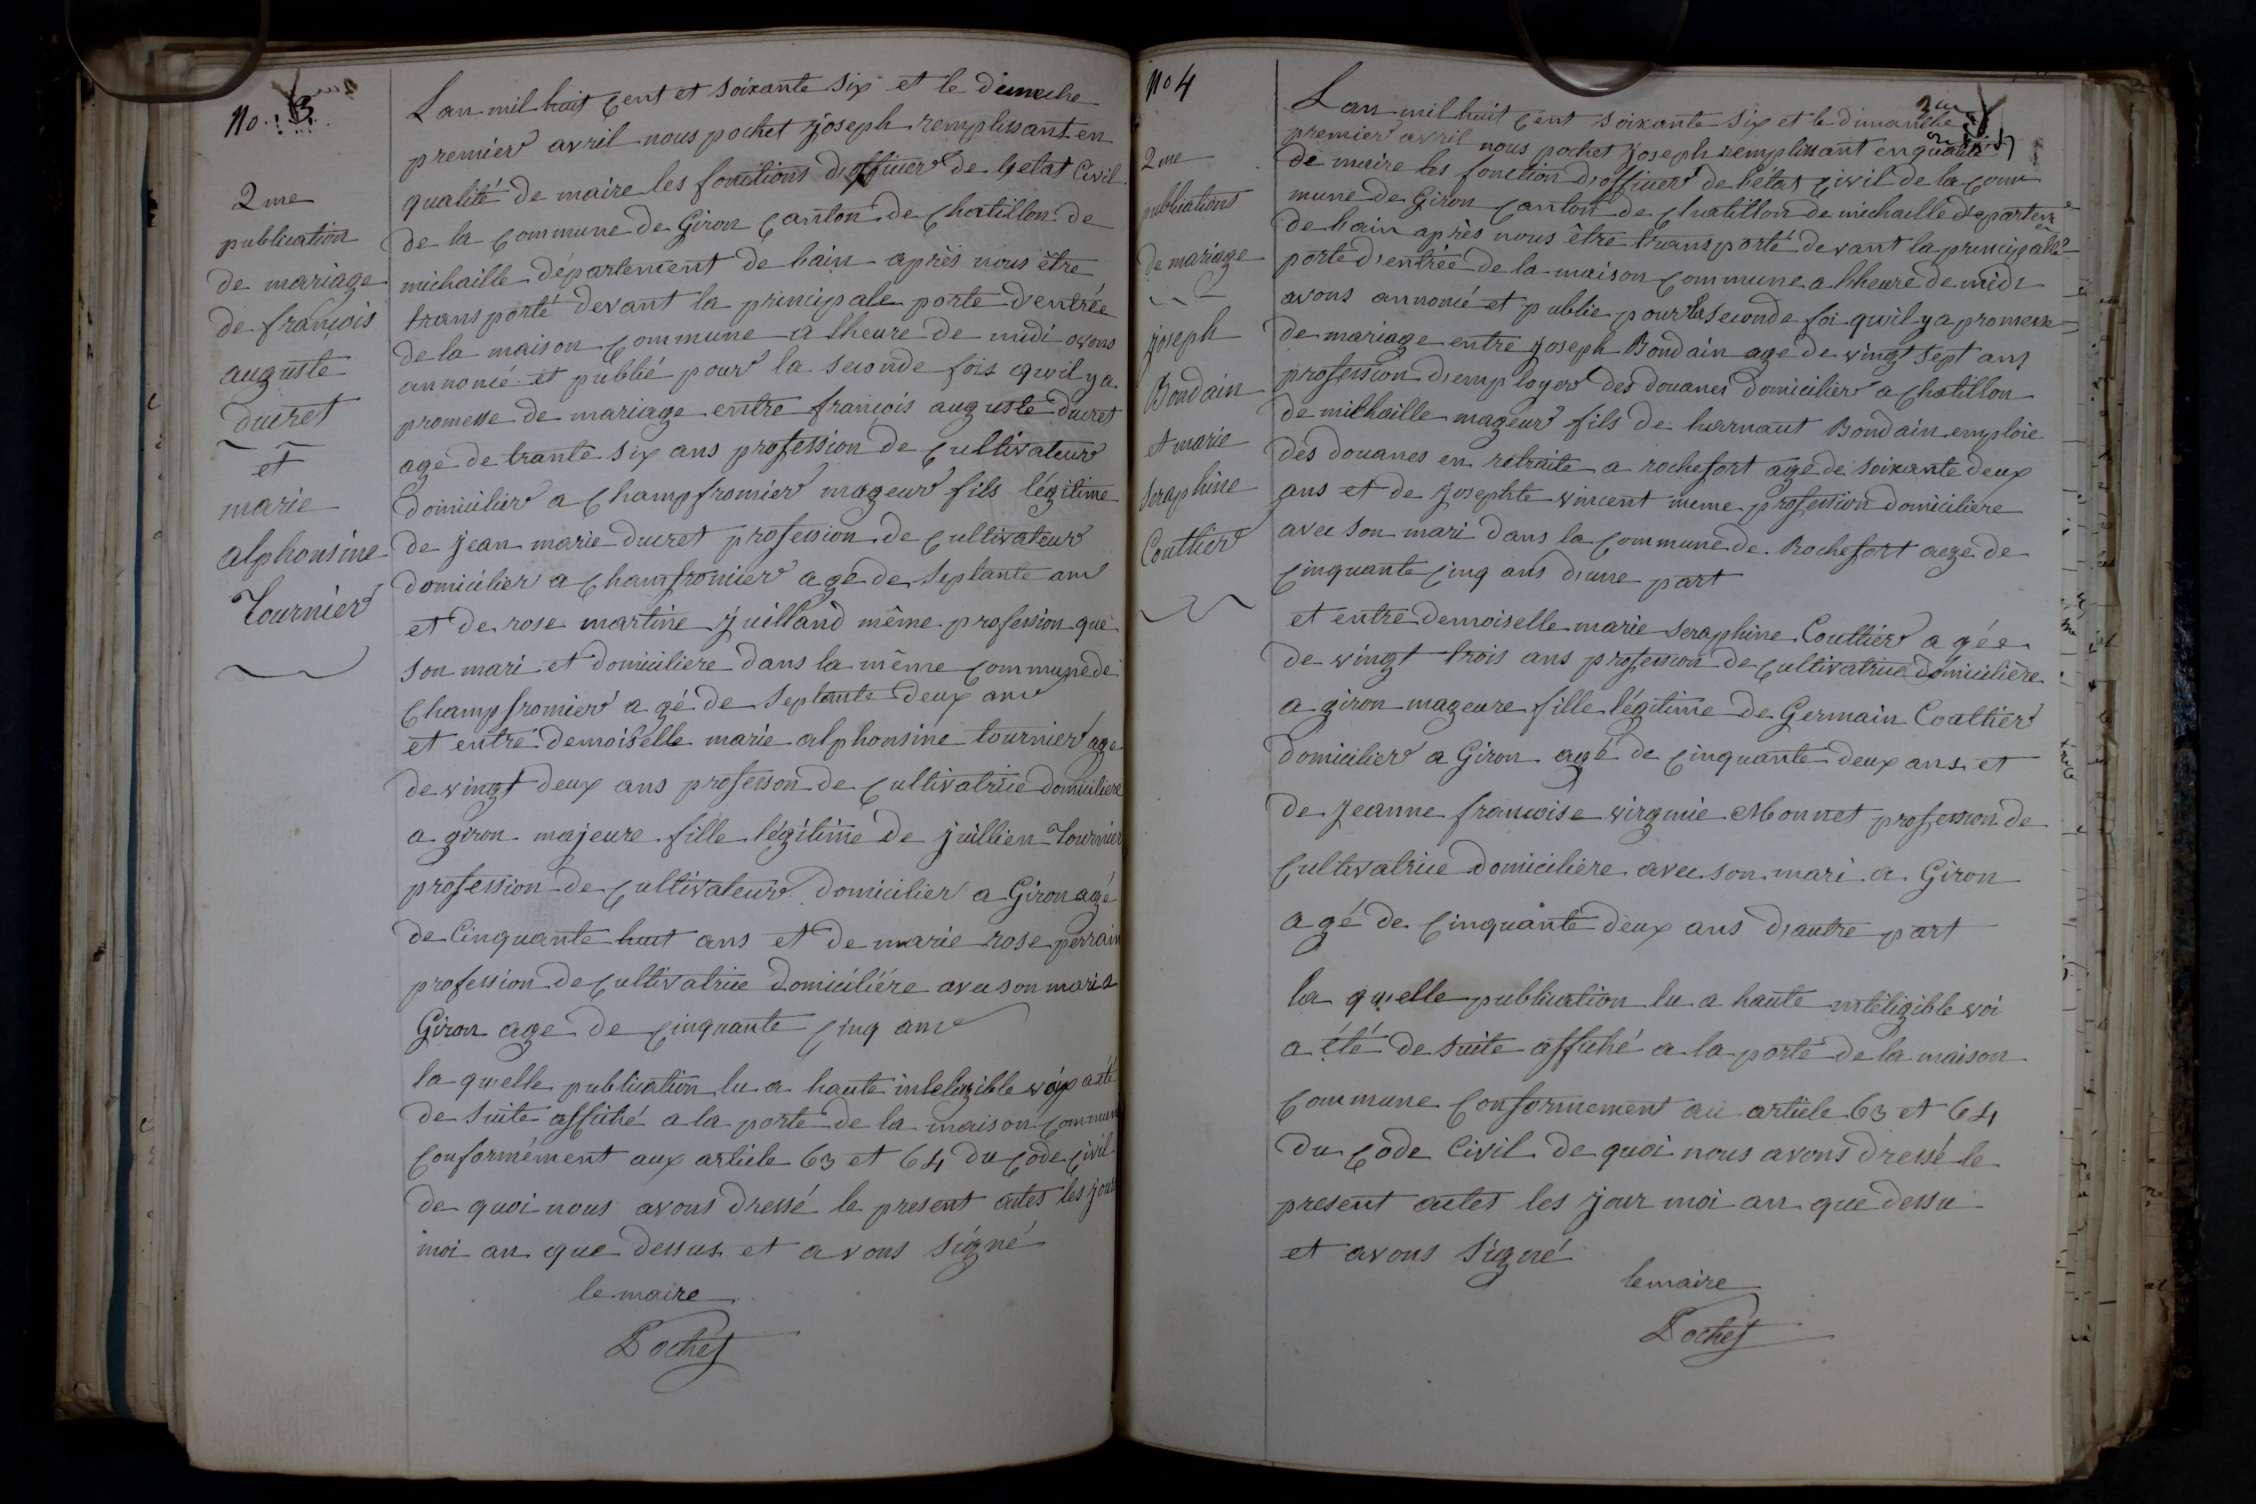 No. 3
2me
publication
de mariage
de françois
auguste
ducret
et
marie
alphonsine
Tournier
Lan mil huit cent et soixante six et le dimache
premier avril nous pochet joseph remplissant en
qualité de maire les fonctions d'officier de letat Civil
de la commune de Giron canton de chatillon de
michaille département de lain après nous être
transporté devant la principale porte d'entrée
de la maison commune a lheure de midi avons
annoncé et publié pour la seconde fois qu'il y a
promesse de mariage entre françois auguste ducret
agé de trante six ans profession de cultivateur
domicilier a champfromier mageur fils légitime
de jean marie ducret profession de cultivateur
domicilier a champfromier age de septante ans
et de rose martine juilland même profession que
son mari et domiciliere dans la même commune de
champfromier agé de septante deux ans
et entre demoiselle marie alphonsine tournier age
de vingt deux ans professon de cultivatrice domiciliere
a giron majeure fille légitime de juillien Tournier
profession de cultivateur domicilier a Giron agé
de Cinquante huit ans et de marie rose perrain
profession de cultivatrice domicilière avec son mari a
Giron age de cinquante cinq ans
la quelle publication lu a haute inteligible voix a été
de suite affiché a la porte de la maison commune
conformément aux article 63 et 64 du code civil
de quoi nous avons dressé le present actes les jour
moi an que dessus et avons signé
le maire
Pochet
No 4
2me
publications
de mariage
joseph
Bondain
et marie
seraphine
Couttier
2me
Lan mil huit cent soixante six et le dimanche
premier avril nous pochet joseph remplissant en qualité
de maire les fonction d'officier de l'état civil de la com
mune de Giron canton de chatillon de michaille département
de lain après nous être transporté devant la principale
porte d'entrée de la maison commune a lheure de midi
avons annoncé et publie pour la seconde foi qu'il y a promesse
de mariage entre joseph Bondain age de vingt sept ans
profession d'employer des douanes domicilier a chatillon
de milhaille mageur fils de hernaut Bondain emploie
des douanes en retraite a rochefort age de soixante deux
ans et de josephte vincent meme profession domiciliere
avec son mari dans la commune de Rochefort age de
cinquante cinq ans d'une part
et entre demoiselle marie seraphine Couttier agée
de vingt trois ans profession de cultivatrice domicilière
a giron mageure fille légitime de Germain Couttier
domicilier a Giron agé de cinquante deux ans et
de jeanne francoise virginie Monnet profession de
cultivatrice domiciliere avec son mari a Giron
agé de cinquante deux ans d'autre part
la quelle publication lu a haute inteligible voi
a été de suite affiché a la porte de la maison
commune conformement au article 63 et 64
du code Civil de quoi nous avons dressé le
present actes les jour moi an que dessu
et avons signé
le maire
Pochet